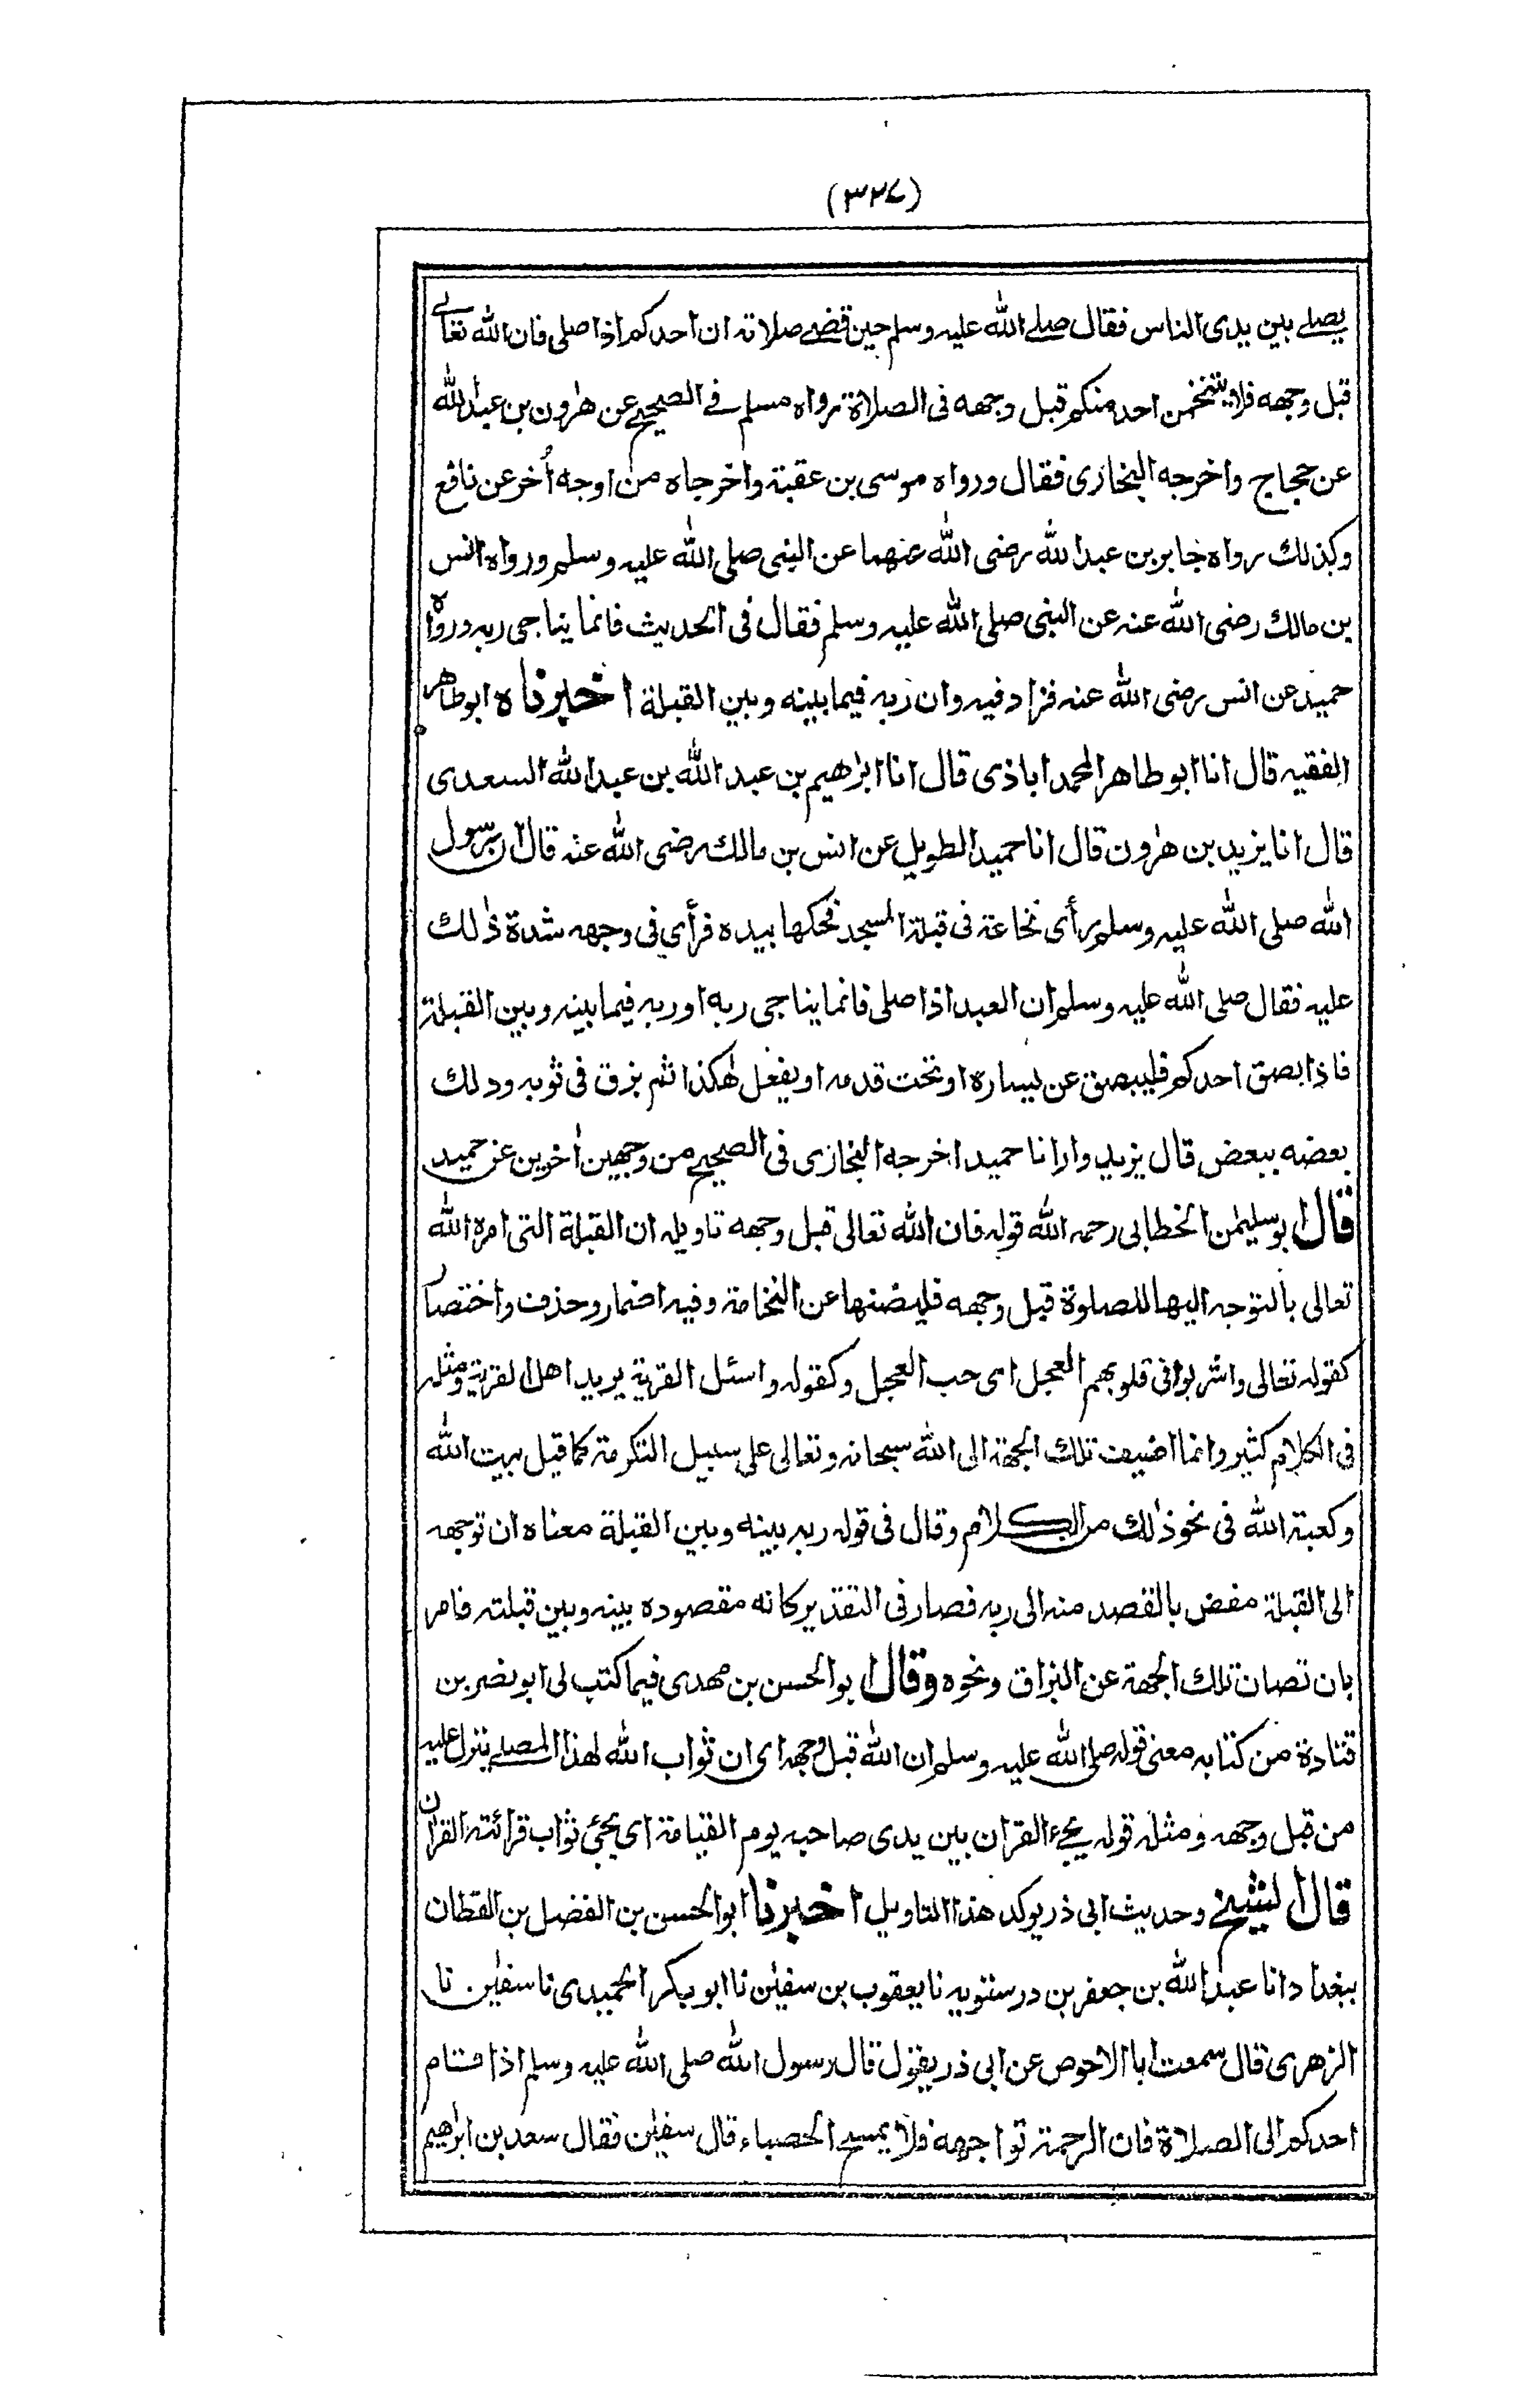 (٣٢٧)
يصلے بين يدى الناس فقال صلے الله عليه وسلم حين قضے صلاته ان احدكم اذا صلى فان الله تعالے
قبل وجهه فلا يتنخمن احد منكم قبل وجهه فى الصلاة رواه مسلم فے الصحيح عن هٰرون بن عبد الله
عن حجاج واخرجه البخارى فقال ورواه موسى بن عقبة واخرجاه من اوجه اُخر عن نافع
وكذلك رواه جابر بن عبد الله رضى الله عنهما عن النبى صلى الله عليه وسلم ورواه انس
بن مالك رضى الله عنه عن النبى صلى الله عليه وسلم فقال فى الحديث فانما يناجى ربه ورواه
حميد عن انس رضى الله عنه فزاد فيه وان ربه فيما بينه وبين القبلة اخبرناه ابو طاهر
الفقيه قال انا ابو طاهر المحمداباذى قال انا ابرٰهيم بن عبد الله بن عبد الله السعدى
قال انا يزيد بن هٰرون قال انا حميد الطويل عن انس بن مالك رضى الله عنه قال ان رسول
الله صلى الله عليه وسلم رأى نخاعة فى قبلة المسجد فحكها بيده فرأى فى وجهه شدة ذٰلك
عليه فقال صلى الله عليه وسلم ان العبد اذا صلى فانما يناجى ربه او ربه فيما بينه وبين القبلة
فاذا بصق احدكم فليبصق عن يساره او تحت قدمه او يفعل هٰكذا ثم بزق فى ثوبه ودلك
بعضه ببعض قال يزيد وارانا حميد اخرجه البخارى فى الصحيح من وجهين اٰخرين عن حميد
قال ابو سليمٰن الخطابى رحمه الله قوله فان الله تعالى قبل وجهه تاويله ان القبلة التى امره الله
تعالى بالتوجه اليها للصلوة قبل وجهه فليصنها عن النخامة وفيه اضمار وحذف واختصار
كقوله تعالى واشربوا فى قلوبهم العجل اى حب العجل وكقوله واسئل القرية يريد اهل القرية ومثله
فى الكلام كثير وانما اضيفت تلك الجهة الى الله سبحانه وتعالى على سبيل التكرمة كما قيل بيت الله
وكعبة الله فى نحو ذٰلك من الكلام وقال فى قوله ربه بينه وبين القبلة معناه ان توجهه
الى القبلة مفض بالقصد منه الى ربه فصار فى التقدير كانه مقصوده بينه وبين قبلته فامر
بان تصان تلك الجهة عن البزاق ونحوه وقال ابو الحسن بن مهدى فيما كتب لى ابو نصر بن
قتادة من كتابه معنى قوله صلى الله عليه وسلم ان الله قبل وجهه اى ان ثواب الله لهذا المصلے ينزل عليه
من قبل وجهه ومثله قوله يجئ القران بين يدى صاحبه يوم القيامة اى يجئ ثواب قرائته القران
قال الشيخ وحديث ابى ذر يوكد هذا التاويل اخبرنا ابو الحسن بن الفضل بن القطان
ببغداد انا عبد الله بن جعفر بن درستويه نا يعقوب بن سفيٰن نا ابو بكر الحميدى نا سفيٰن نا
الزهرى قال سمعت ابا الاحوص عن ابى ذر يقول قال رسول الله صلى الله عليه وسلم اذا قام
احدكم الى الصلاة فان الرحمة تواجهه فلا يمسح الحصباء قال سفيٰن فقال سعد بن ابرٰهيم